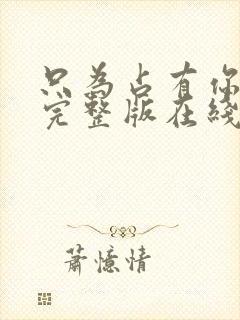 只为占有你
完整版在线
萧忆情